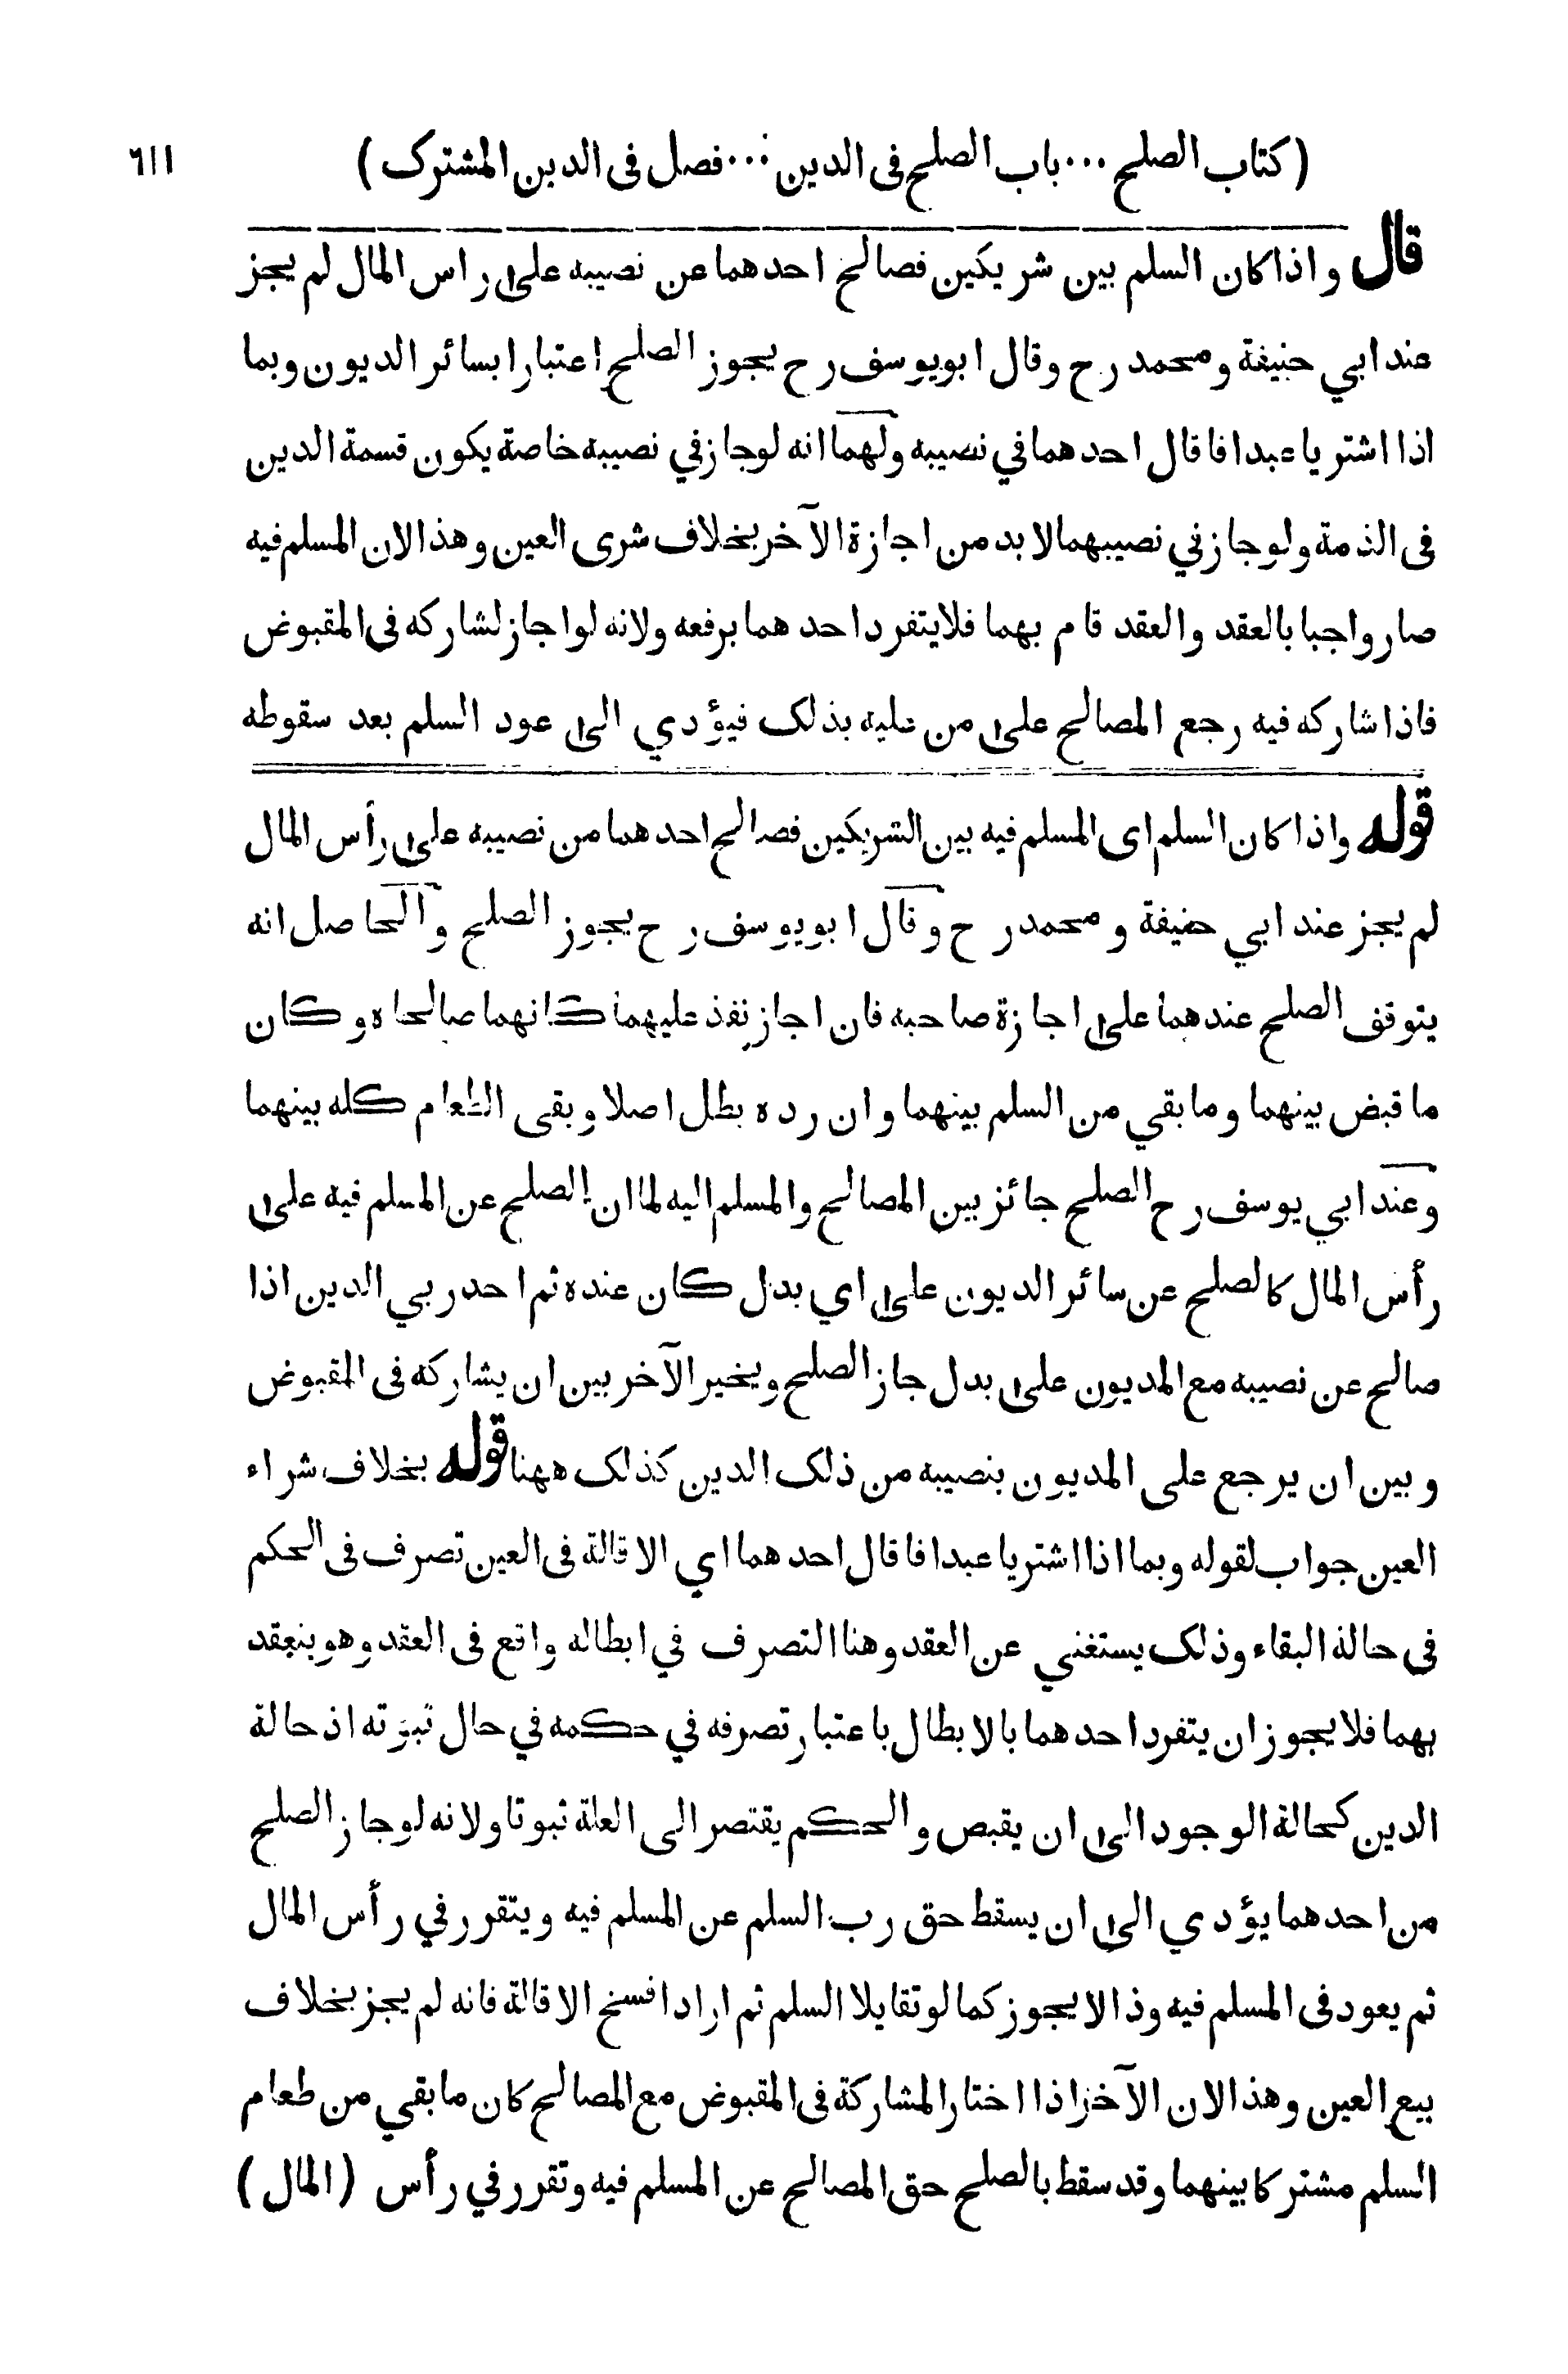 (كتاب الصلح ... باب الصلح فى الدين ... فصل فى الدين المشترك) ٦١١
قال واذا كان السلم بين شريكين فصالح احدهما عن نصيبه على راس المال لم يجز
عند ابي حنيفة ومحمد رح وقال ابويوسف رح يجوز الصلح اعتبارا بسائر الديون وبما
اذا اشتريا عبدا فاقال احدهما في نصيبه ولهما انه لو جاز في نصيبه خاصة يكون قسمة الدين
فى الذمة ولو جاز في نصيبهما لا بد من اجازة الآخر بخلاف شرى العين وهذا لان المسلم فيه
صار واجبا بالعقد والعقد قام بهما فلا يتفرد احدهما برفعه ولانه لو اجاز لشاركه فى المقبوض
فاذا شاركه فيه رجع المصالح على من عليه بذلك فيؤدي الى عود السلم بعد سقوطه
قوله واذا كان السلم اى المسلم فيه بين الشريكين فصالح احدهما من نصيبه على رأس المال
لم يجز عند ابي حنيفة ومحمد رح وقال ابو يوسف رح يجوز الصلح والحاصل انه
يتوقف الصلح عندهما على اجازة صاحبه فان اجاز نفذ عليهما كانهما صالحاه وكان
ما قبض بينهما وما بقي من السلم بينهما وان رده بطل اصلا وبقى الطعام كله بينهما
وعند ابي يوسف رح الصلح جائز بين المصالح والمسلم اليه لما ان الصلح عن المسلم فيه على
رأس المال كالصلح عن سائر الديون على اي بدل كان عنده ثم احد ربي الدين اذا
صالح عن نصيبه مع المديون على بدل جاز الصلح ويخير الآخر بين ان يشاركه فى المقبوض
وبين ان يرجع على المديون بنصيبه من ذلك الدين كذلك ههنا قوله بخلاف شراء
العين جواب لقوله وبما اذا اشتريا عبدا فاقال احدهما اي الاقالة فى العين تصرف فى الحكم
فى حالة البقاء وذلك يستغني عن العقد وهنا التصرف في ابطاله واقع فى العقد وهو ينعقد
بهما فلا يجوز ان يتفرد احدهما بالابطال باعتبار تصرفه في حكمه في حال ثبوته اذ حالة
الدين كحالة الوجود الى ان يقبض والحكم يقتصر الى العلة ثبوتا ولانه لو جاز الصلح
من احدهما يؤدي الى ان يسقط حق رب السلم عن المسلم فيه ويتقرر في رأس المال
ثم يعود فى المسلم فيه وذا لا يجوز كما لو تقايلا السلم ثم ارادا فسخ الاقالة فانه لم يجز بخلاف
بيع العين وهذا لان الآخر اذا اختار المشاركة فى المقبوض مع المصالح كان ما بقي من طعام
السلم مشتركا بينهما وقد سقط بالصلح حق المصالح عن المسلم فيه وتقرر في رأس (المال)